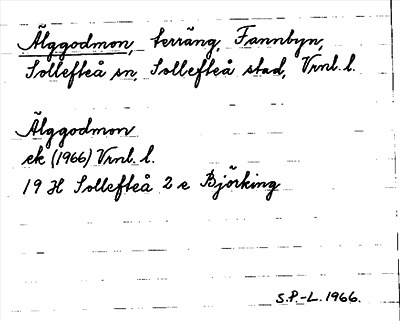 Älggodmon, terräng, Fannbyn,
Sollefteå sn, Sollefteå stad, Vrnl. l.
Älggodmon
ek (1966) Vrnl. l.
19 H Sollefteå 2 e Björking
S.P.-L. 1966.